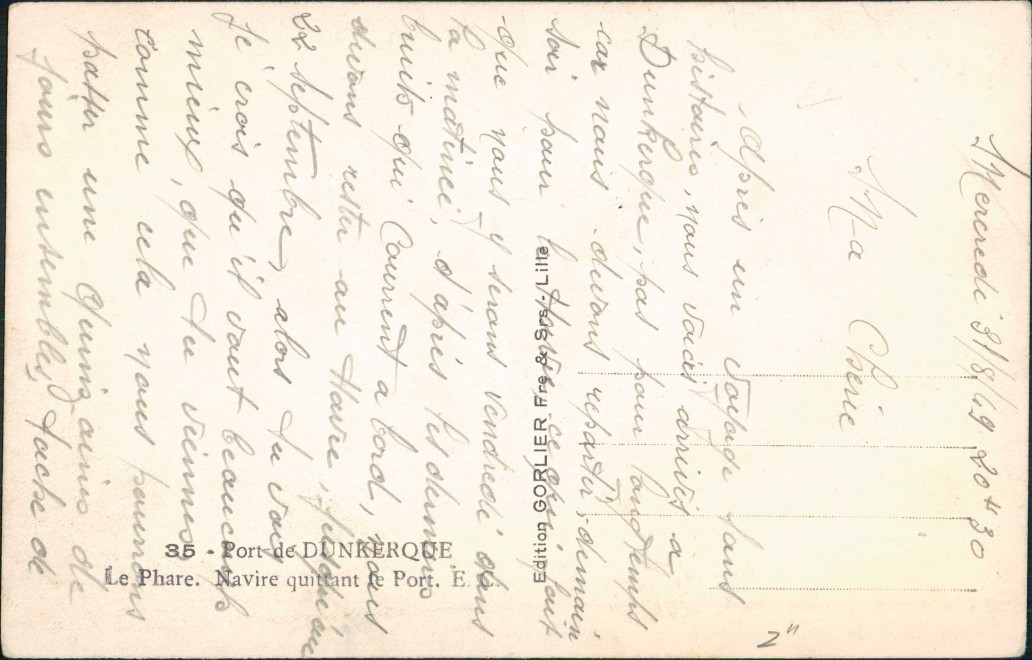 Mercredi 31/8/49 20 H 30
Ma Chérie
Après un voyage sans
histoires, nous voici arrivés a
Dunkerque, pas pour longtemps
car nous devons repartir demain
soir pour ce qui fait
que nous y serons vendredi dans
la matinée, d'après les derniers
bruits qui Courrent a bord, nous
devons rester au Havre, jusqu'au
22 septembre, alors tu vois
Je crois qu'il vaut beaucoup
mieux, que tu viennes
comme cela nous pourrons
passer une Quinzaine de
jours ensembles, tache de
Edition GORLIER Fre & Srs - Lille
35 - Port de DUNKERQUE
Le Phare. Navire quittant le Port. E. C.